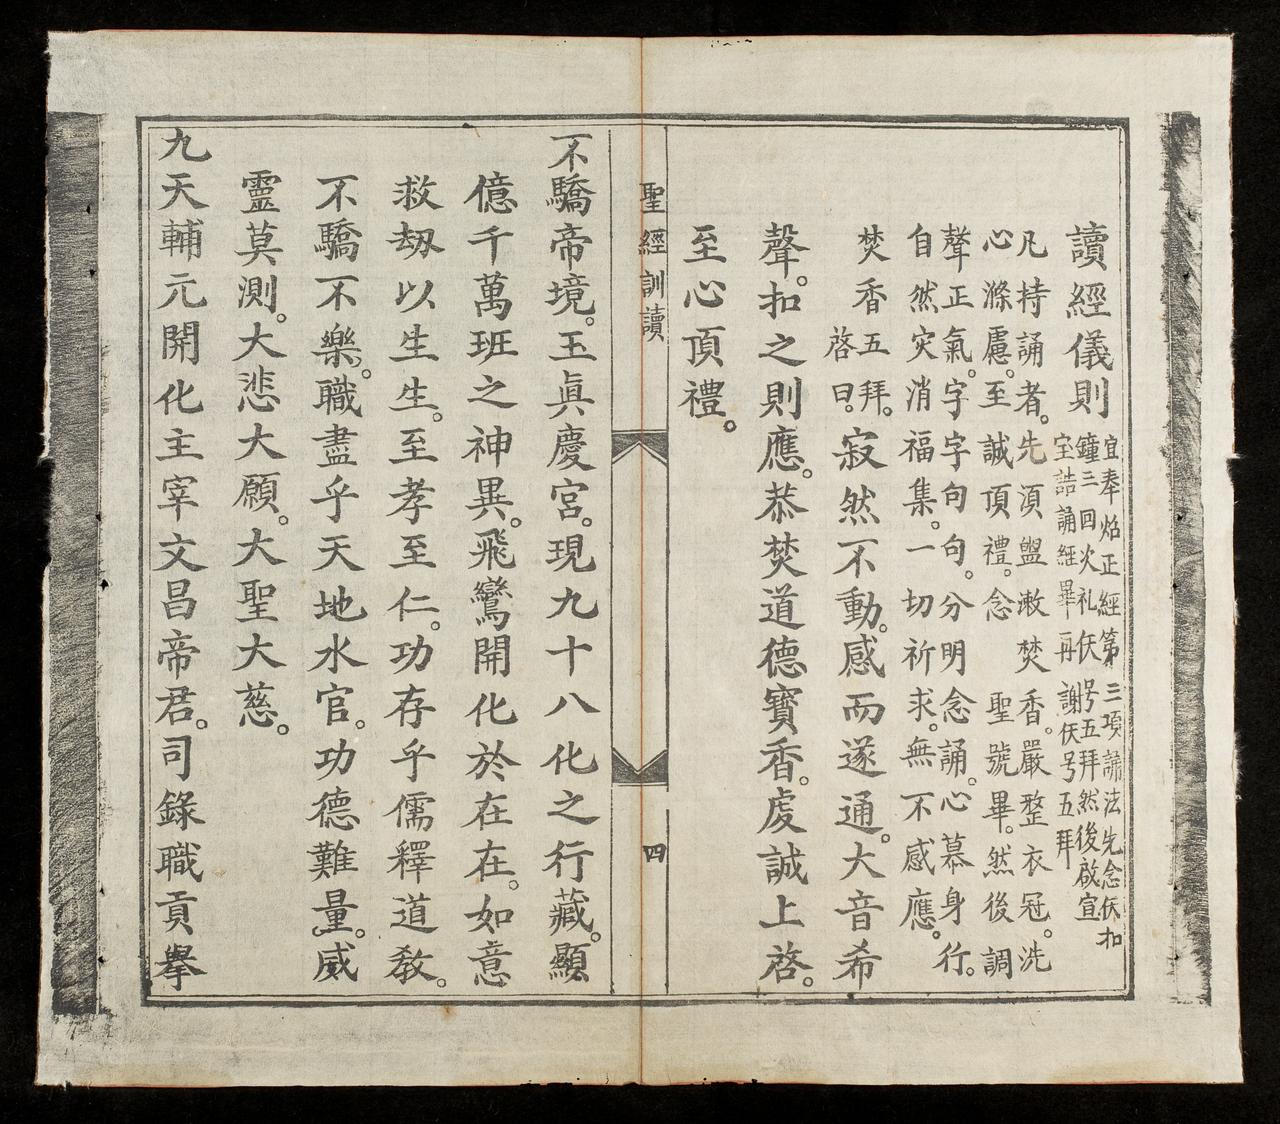 讀經儀則
宜奉焰正經第三項諦法先念仸扣
鐘三回火礼仸号五拜然後啟宣
宝誥誦經畢再謝仸号五拜
凡持誦者。先湏盥漱焚香。嚴整衣冠。洗
心滌慮。至誠頂禮。念聖號畢。然後調
聲正氣。字字句句。分明念誦。心慕身行。
自然灾消福集。一切祈求。無不感應。
焚香五拜。
啓曰。
寂然不動。感而遂通。大音希
聲。扣之則應。恭焚道德寶香。虔誠上啓。
至心頂禮。
聖經訓讀
四
不驕帝境。玉眞慶宮。現九十八化之行藏。顯
億千萬班之神異。飛鸞開化於在在。如意
救刼以生生。至孝至仁。功存乎儒釋道敎。
不驕不樂。職盡乎天地水官。功德難量。威
靈莫測。大悲大願。大聖大慈。
九天輔元開化主宰文昌帝君。司錄職貢舉